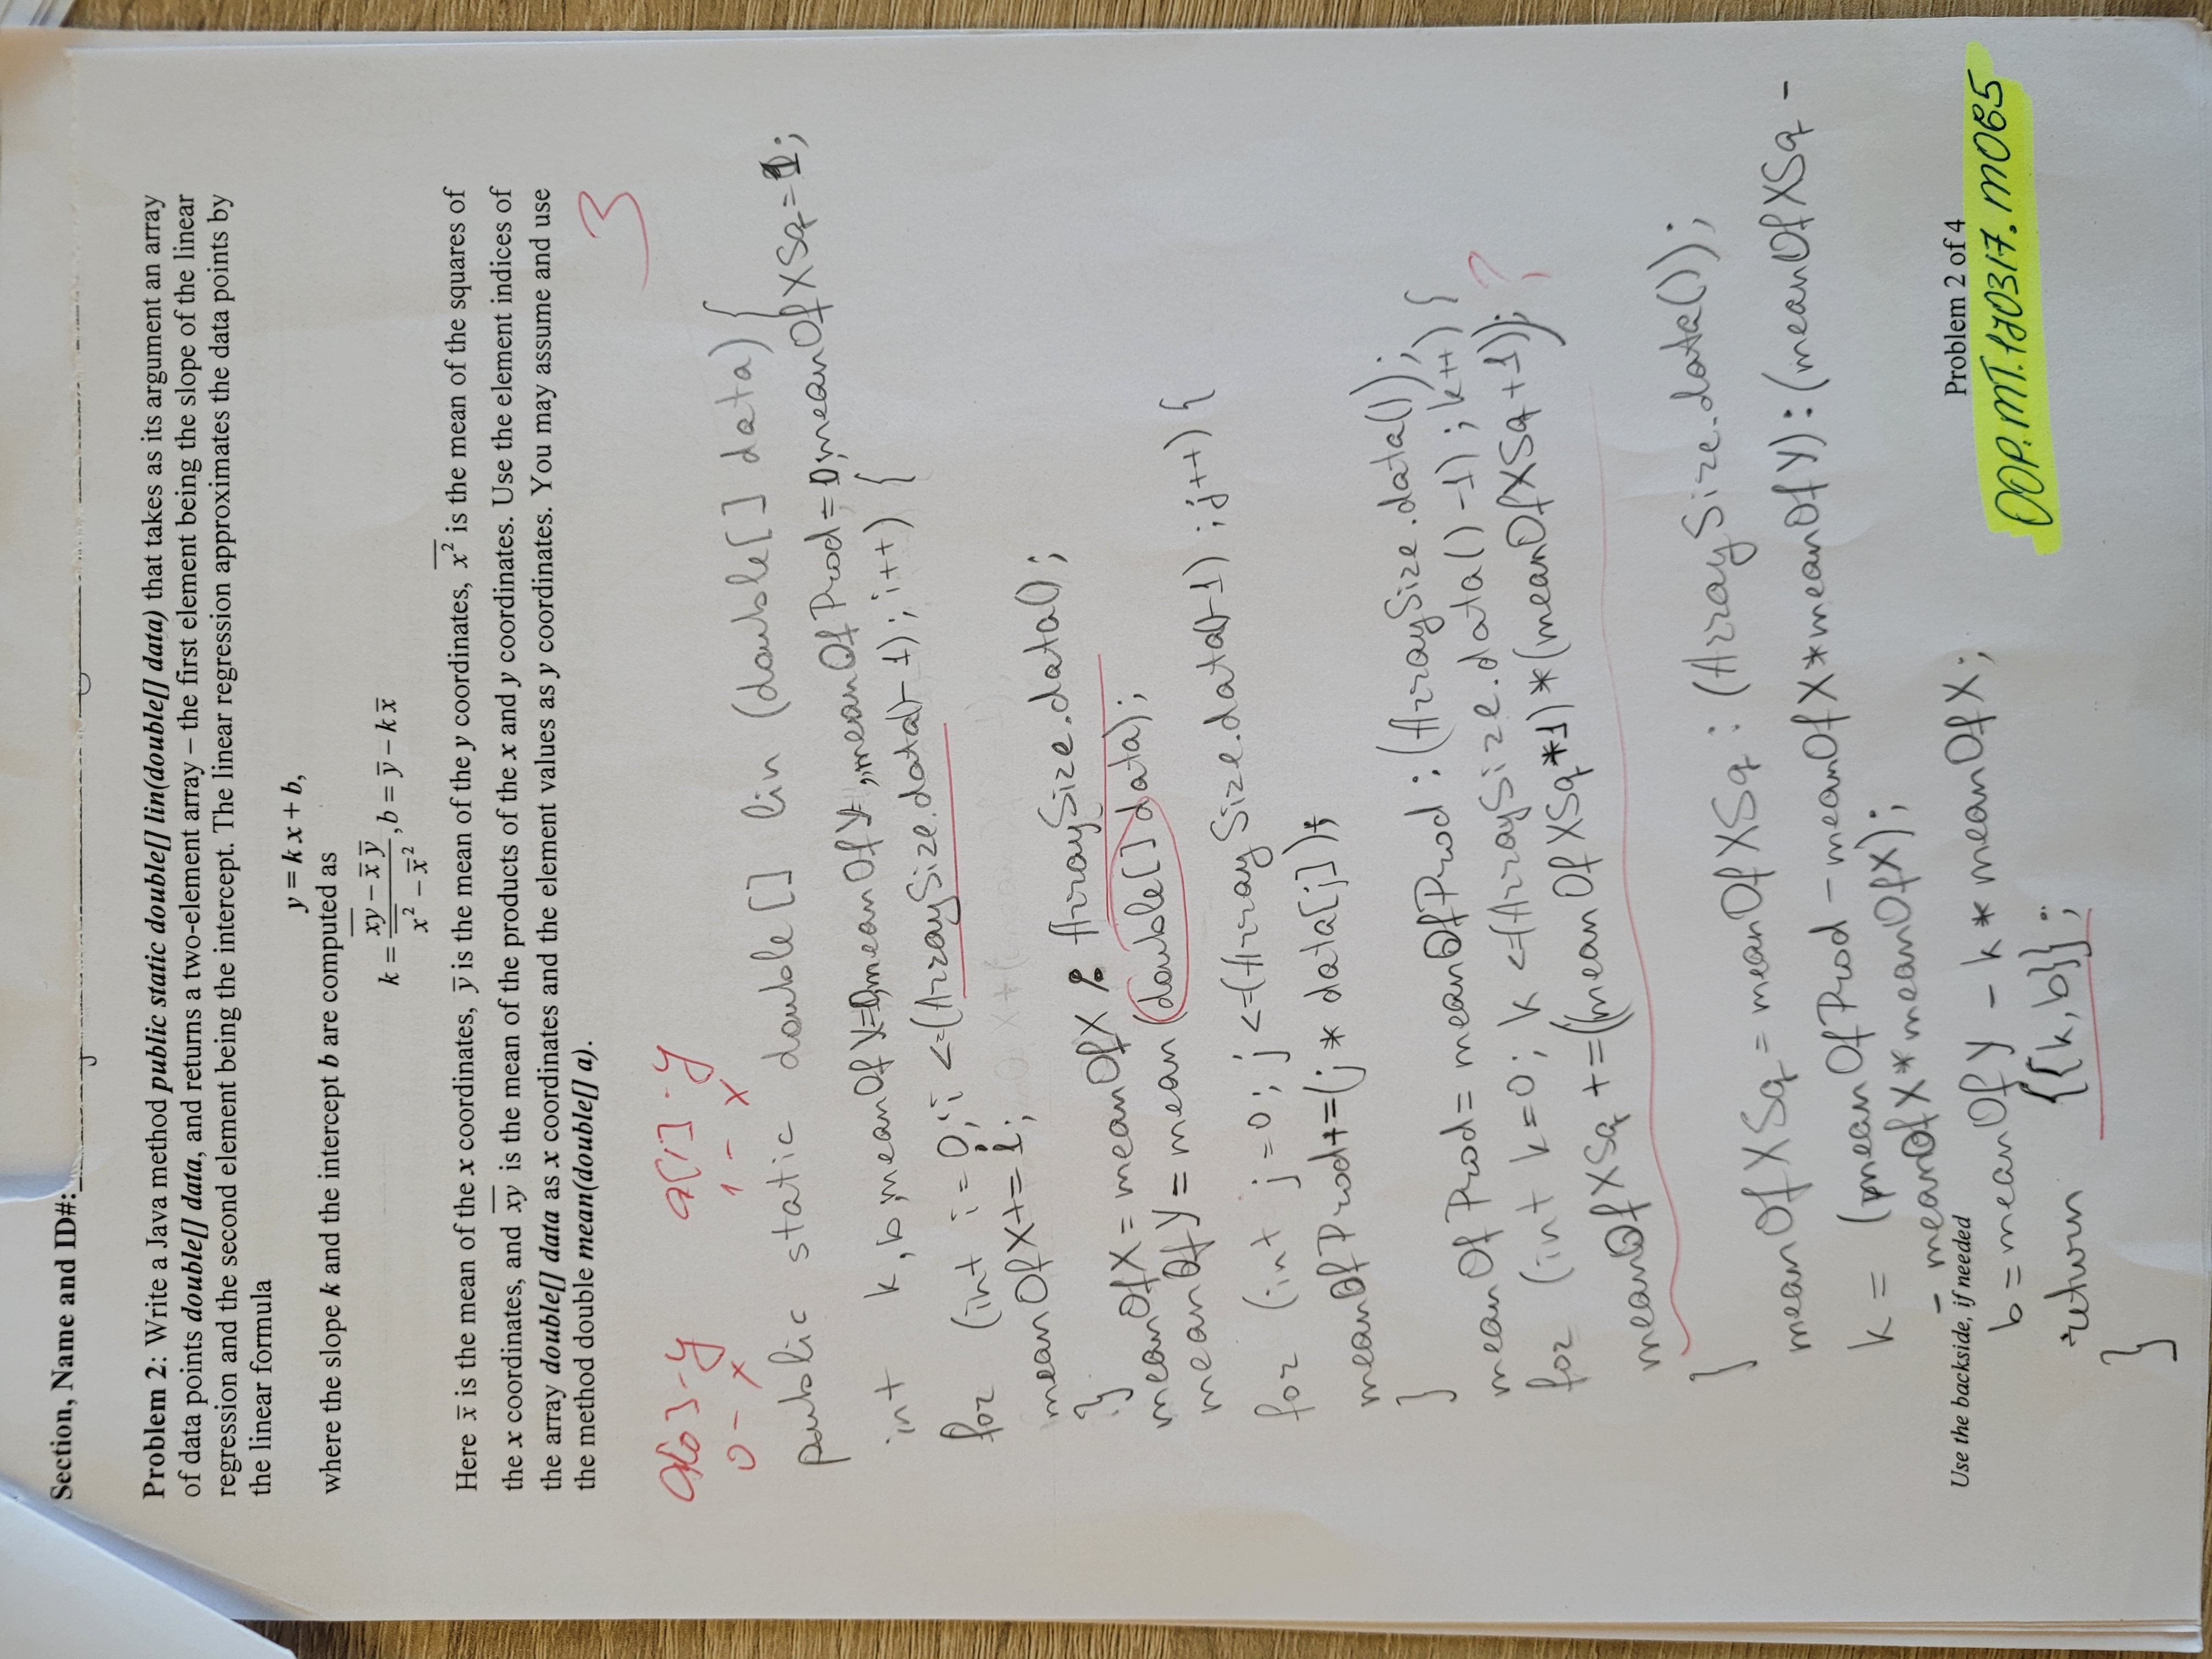 Section, Name and ID#:
Problem 2: Write a Java method public static double[] lin(double[] data) that takes as its argument an array
of data points double[] data, and returns a two-element array – the first element being the slope of the linear
regression and the second element being the intercept. The linear regression approximates the data points by
the linear formula
y = k x + b,
where the slope k and the intercept b are computed as
k = (x̅y̅ – x̅ y̅) / (x̅²̅ – x̅²), b = y̅ – k x̅
Here x̅ is the mean of the x coordinates, y̅ is the mean of the y coordinates, x̅²̅ is the mean of the squares of
the x coordinates, and x̅y̅ is the mean of the products of the x and y coordinates. Use the element indices of
the array double[] data as x coordinates and the element values as y coordinates. You may assume and use
the method double mean(double[] a).
3
a[0] - y a[1] - y
0 - x 1 - x
public static double[] lin (double[] data) {
int k, b, meanOfX=0, meanOfY, meanOfProd=0, meanOfXSq=
for (int i=0; i<=(ArraySize.data()-1); i++) {
meanOfX+=1;
}
meanOfX = meanOfX : ArraySize.data();
meanOfY = mean (double[] data);
for (int j=0; j<=(ArraySize.data()-1); j++) {
meanOfProd+=(j * data[j]);
}
meanOfProd = meanOfProd : (ArraySize.data());
for (int k=0; k<=(ArraySize.data()-1); k++) {
meanOfXSq +=((meanOfXSq*1)*(meanOfXSq+1));
?
}
meanOfXSq = meanOfXSq : (ArraySize.data());
k = (meanOfProd - meanOfX*meanOfY) : (meanOfXSq -
- meanOfX*meanOfX);
b = meanOfY - k * meanOfX;
return {{k,b}};
}
Use the backside, if needed
Problem 2 of 4
OOP.MT.190317.M085